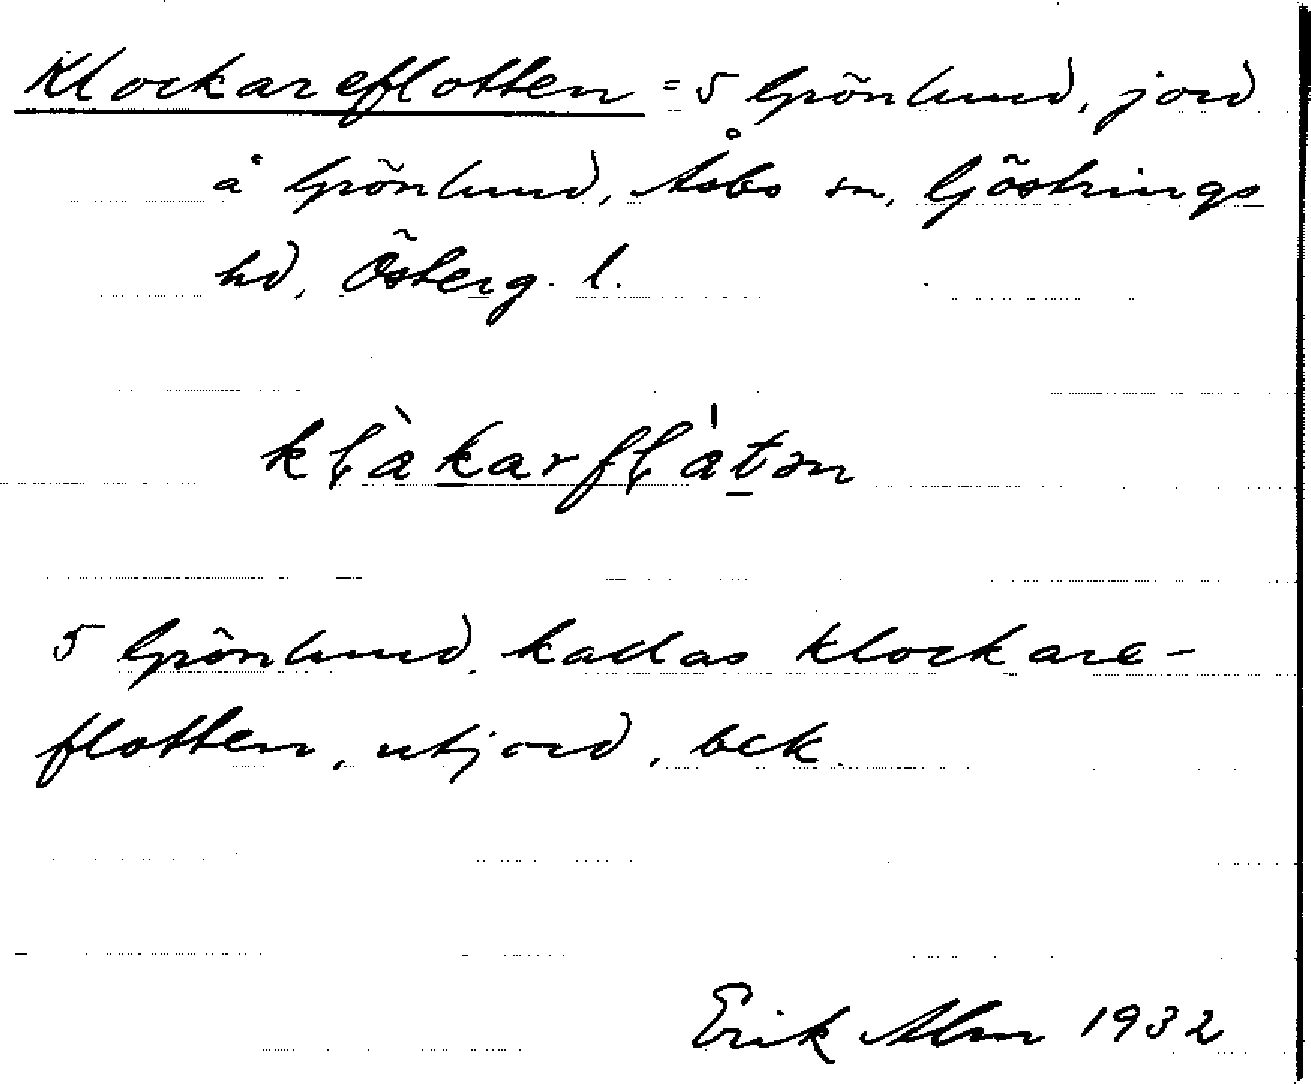 Klockareflotten = 5 Grönlund, jord
å Grönlund, Åsbo sn, Göstrings
hd, Österg. l.
klàkarflàtən
5 Grönlund, kallas Klockare-
flotten, utjord, bek.
Erik Alm 1932